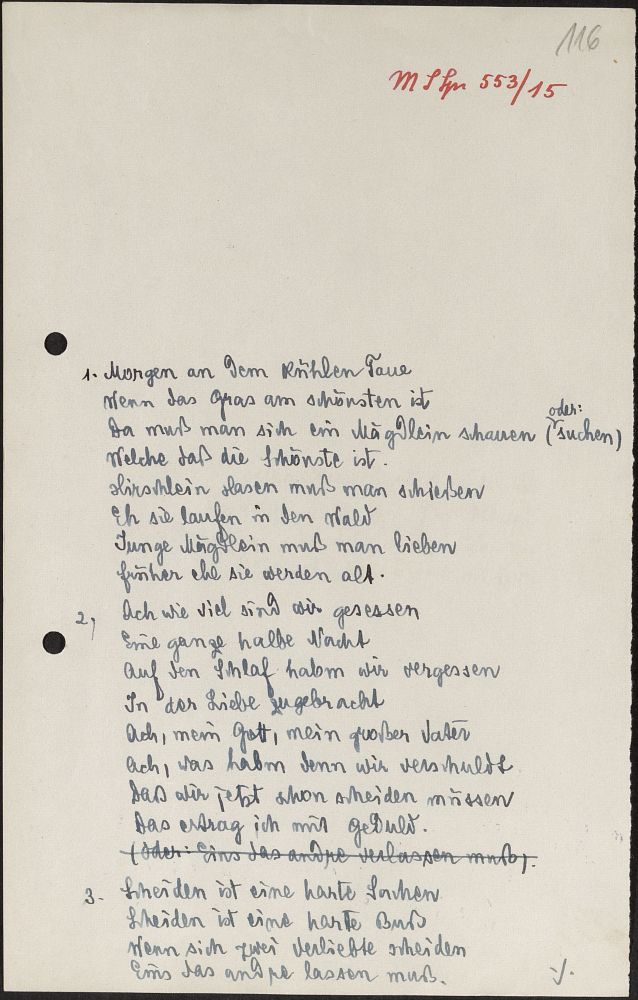 116
M S Spr 553/15
1. Morgen an dem kühlen Taue
Wenn das Gras am schönsten ist
oder:
Da muß man sich ein Mägdlein schauen (suchen)
Welche daß die Schönste ist.
Hirschlein Hasen muß man schießen
Eh sie laufen in den Wald
Junge Mägdlein muß man lieben
früher ehe sie werden alt.
2, Ach wie viel sind wir gesessen
Eine ganze halbe Nacht
Auf den Schlaf habm wir vergessen
In der Liebe zugebracht
Ach, mein Gott, mein großer Vater
Ach, was habm denn wir verschuldt
Daß wir jetzt schon scheiden müssen
Das ertrag ich mit Geduld.
(oder: Eins das andre verlassen muß).
3. Scheiden ist eine harte Sachen
Scheiden ist eine harte Buß
Wenn sich zwei Verliebte scheiden
Eins das andre lassen muß. ./.